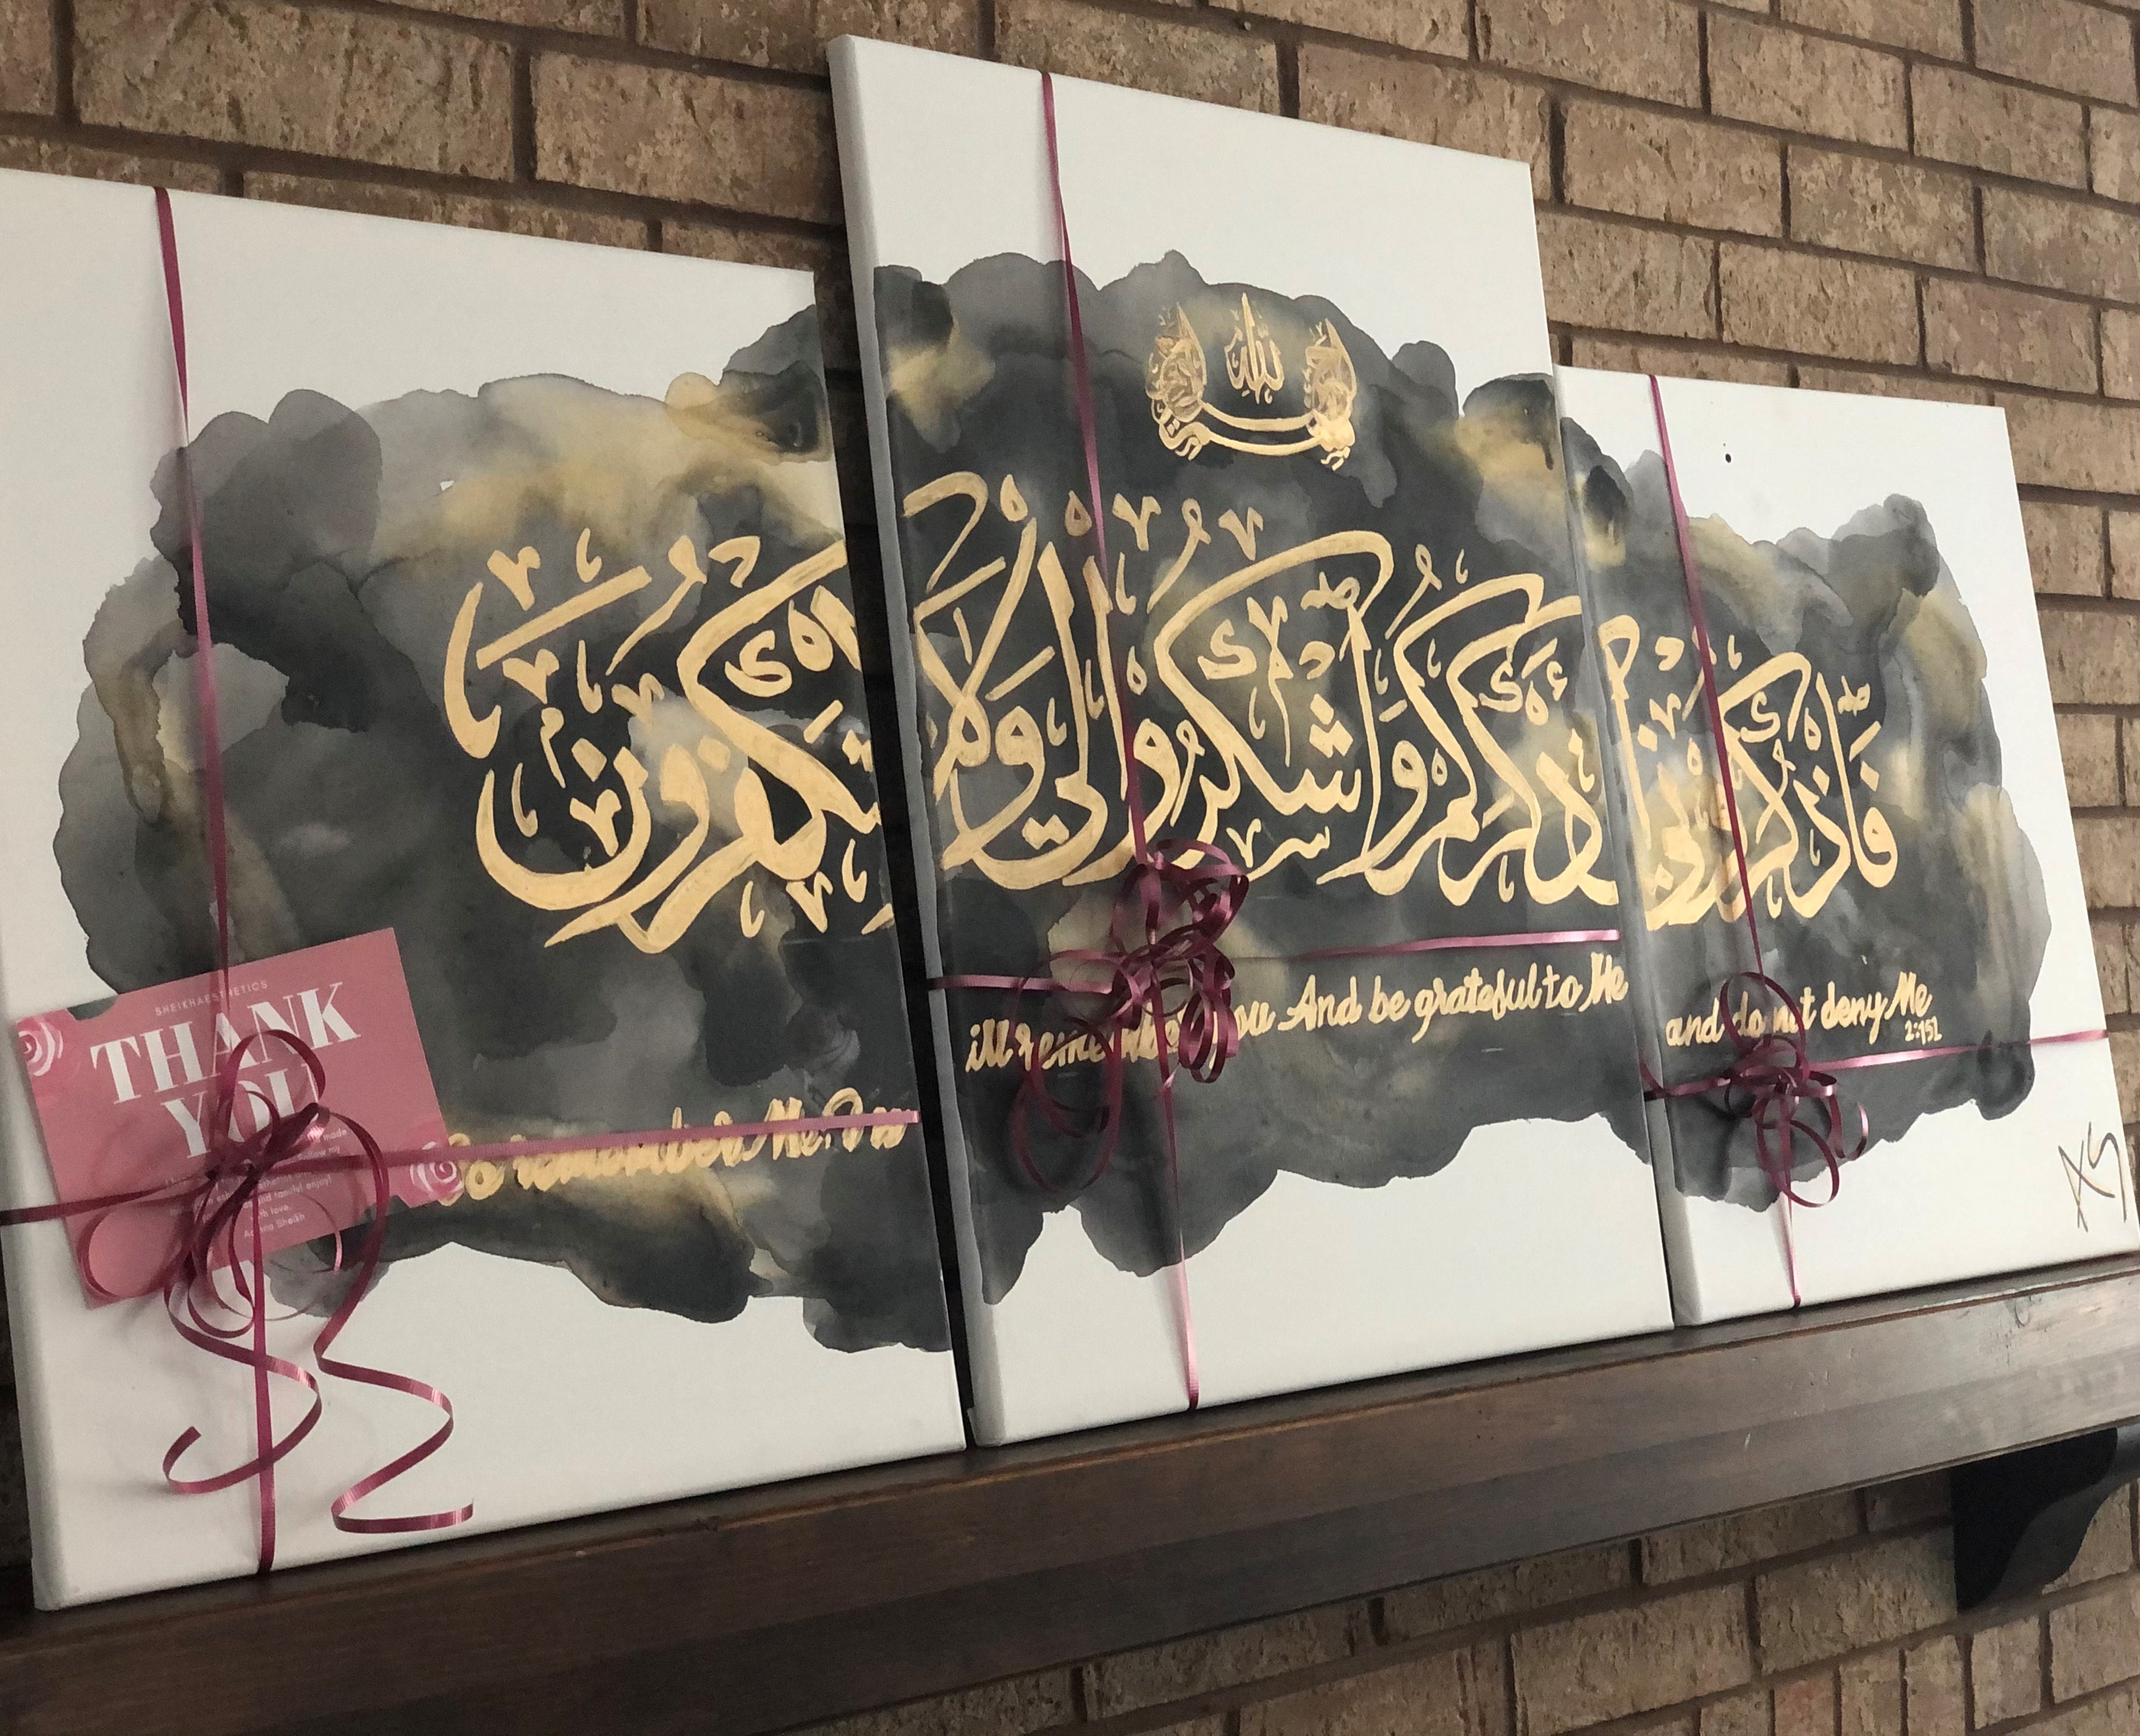 فَاذْكُرُونِي أَذْكُرْكُمْ وَاشْكُرُوا لِي وَلَا تَكْفُرُونِ
So remember Me. I w
ill remember you And be grateful to Me
and do not deny Me
2:152
AS
SHEIKHAESTHETICS
THANK
YOU
made
and family! enjoy!
love,
Sheikh